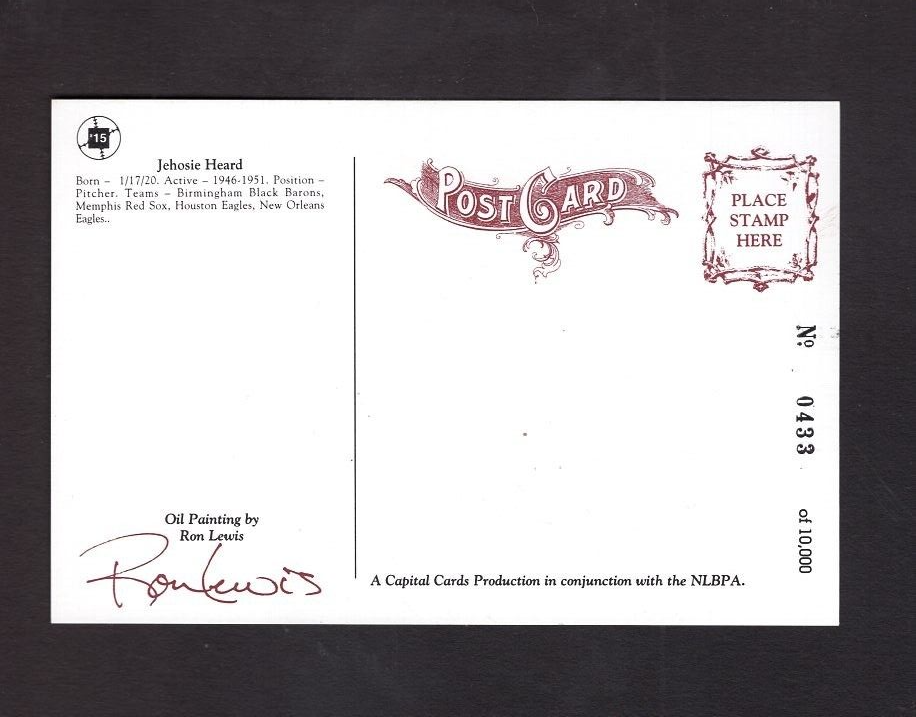 '15
Jehosie Heard
Born – 1/17/20. Active – 1946-1951. Position –
Pitcher. Teams – Birmingham Black Barons,
Memphis Red Sox, Houston Eagles, New Orleans
Eagles..
Oil Painting by
Ron Lewis
Ron Lewis
POST CARD
PLACE
STAMP
HERE
No. 0433 of 10,000
A Capital Cards Production in conjunction with the NLBPA.